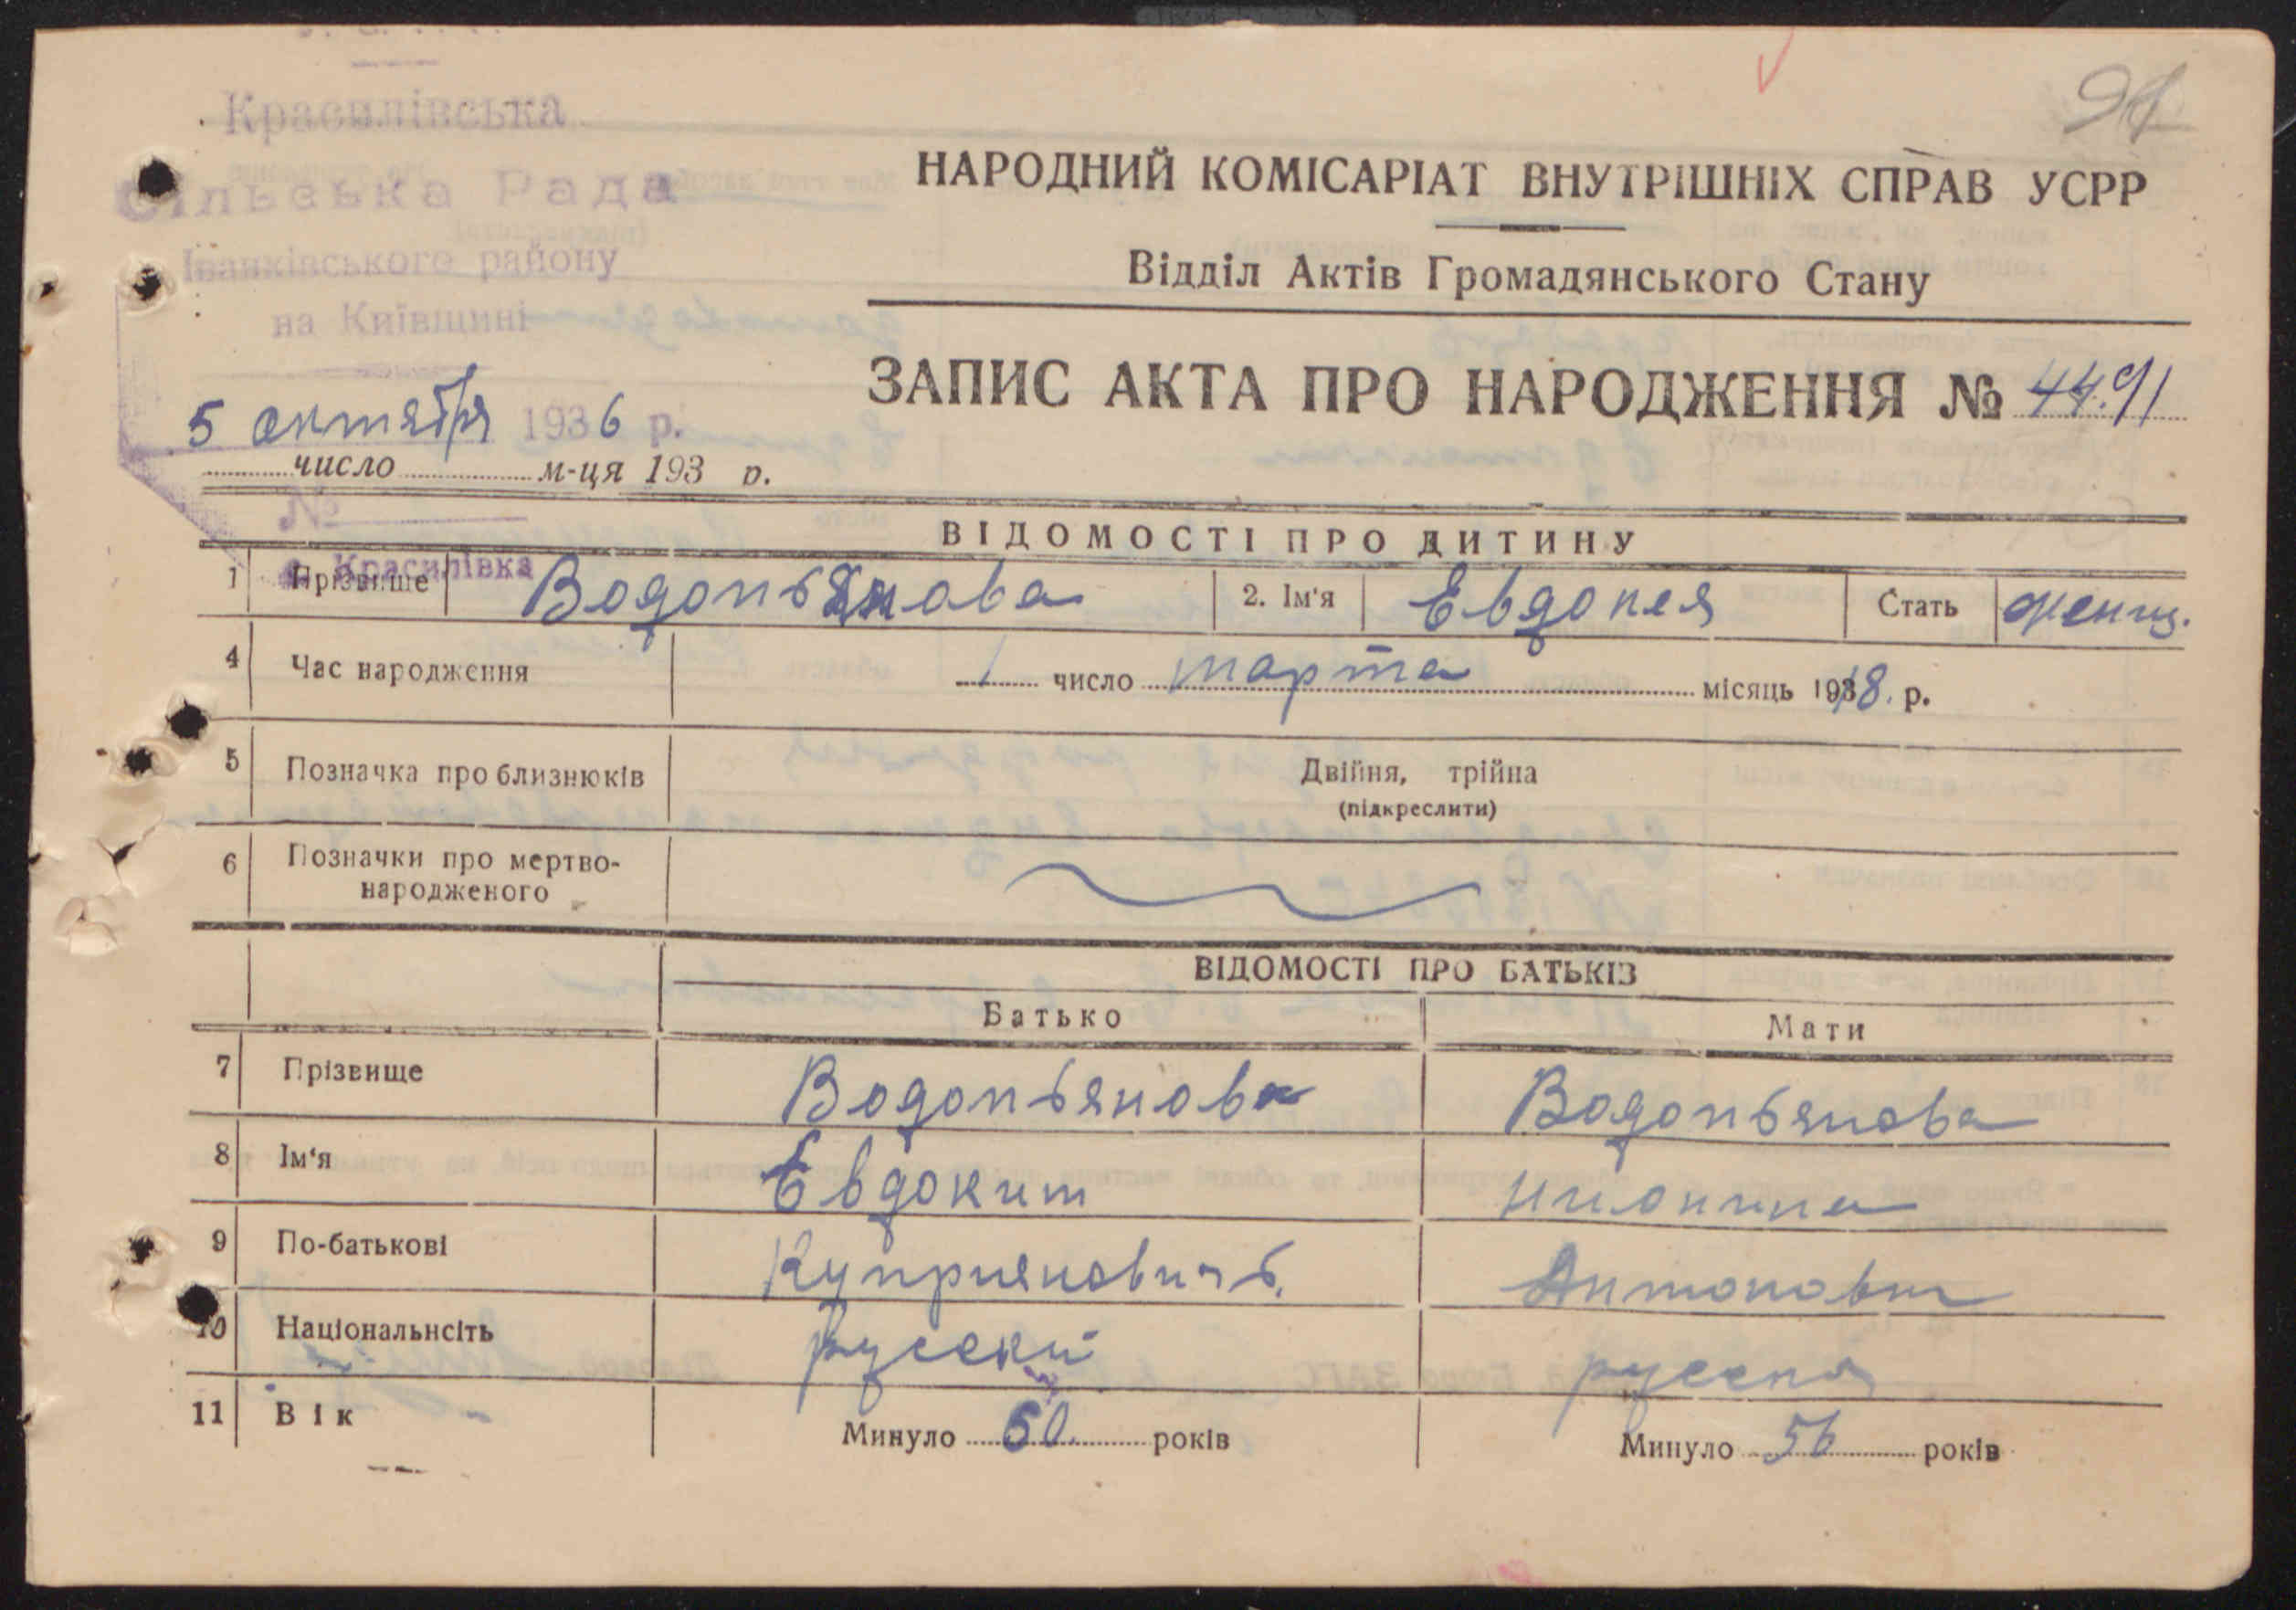 91
Красилівська
Сільська Рада
Іванківського району
на Київщині
5 октября 1936 р.
число м-ця 193 р.
№
с. Красилівка
НАРОДНИЙ КОМІСАРІАТ ВНУТРІШНІХ СПРАВ УСРР
Відділ Актів Громадянського Стану
ЗАПИС АКТА ПРО НАРОДЖЕННЯ №
ВІДОМОСТІ ПРО ДИТИНУ
1 Прізвище Водопьянова 2. Ім'я Евдокея Стать женщ.
4 Час народження 1 число марта місяць 1918. р.
5 Позначка про близнюків Двійня, трійна
(підкреслити)
6 Позначки про мертво-
народженого
ВІДОМОСТІ ПРО БАТЬКІВ
Батько Мати
7 Прізвище Водопьянова Водопьянова
8 Ім'я Евдоким
9 По-батькові Куприяновичь. Антоновн
10 Національнсіть русский русская
11 Вік Минуло 60. років Минуло 56 років